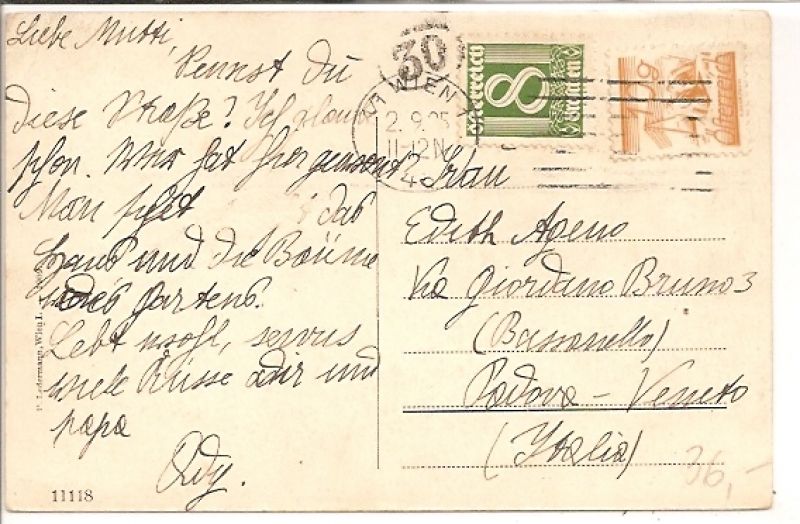 Liebe Mutti,
Kennst du
diese Straße? Ich glaube
schon. Wer hat hier gewohnt?
Man sieht das
Haus und die Bäume
des Gartens.
Lebt wohl, servus
viele Küsse dir und
papa
30
WIEN
2.9.25
11-12N
4
8
Österreich
10g
Österreich
Frau
Edith Ageno
Via Giordano Bruno 3
(Bassanello)
Padova - Veneto
(Italia)
36,-
P. Ledermann, Wien I.
11118